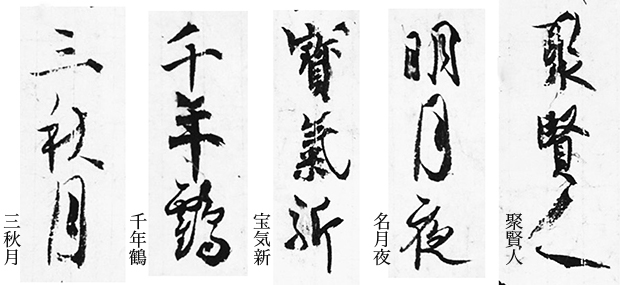 聚賢人
聚賢人
明月夜
名月夜
寶氣新
宝気新
千年鶴
千年鶴
三秋月
三秋月